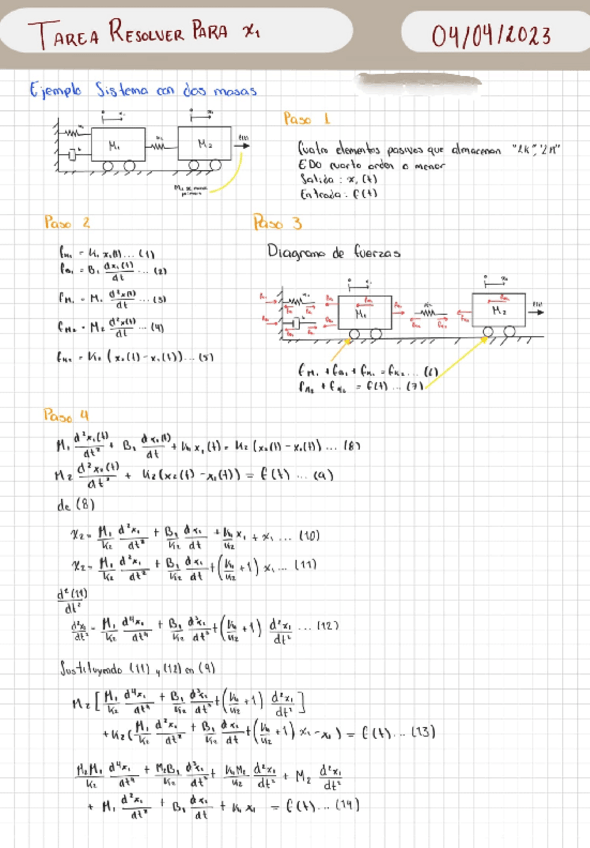 TAREA RESOLVER PARA x₁
04/04/2023
Ejemplo Sistema con dos masas
Paso 1
Cuatro elementos pasivos que almacenan "2K", "2M"
EDO cuarto orden o menor
Salida: x₁(t)
Entrada: f(t)
K₁ M₁ K₂ M₂ f(t)
B₁
Paso 2
f_K₁ = K₁ x₁(t) ... (1)
f_B₁ = B₁ dx₁(t)/dt ... (2)
f_M₁ = M₁ d²x₁(t)/dt² ... (3)
f_M₂ = M₂ d²x₂(t)/dt² ... (4)
f_K₂ = K₂ (x₂(t) - x₁(t)) ... (5)
Paso 3
Diagrama de fuerzas
M₁ M₂ f(t)
f_M₁ + f_B₁ + f_K₁ = f_K₂ ... (6)
f_M₂ + f_K₂ = f(t) ... (7)
Paso 4
M₁ d²x₁(t)/dt² + B₁ dx₁(t)/dt + K₁ x₁(t) = K₂ (x₂(t) - x₁(t)) ... (8)
M₂ d²x₂(t)/dt² + K₂(x₂(t) - x₁(t)) = f(t) ... (9)
de (8)
x₂ = M₁/K₂ d²x₁/dt² + B₁/K₂ dx₁/dt + K₁/K₂ x₁ + x₁ ... (10)
x₂ = M₁/K₂ d²x₁/dt² + B₁/K₂ dx₁/dt + (K₁/K₂ + 1) x₁ ... (11)
d²(11)/dt²
d²x₂/dt² = M₁/K₂ d⁴x₁/dt⁴ + B₁/K₂ d³x₁/dt³ + (K₁/K₂ + 1) d²x₁/dt² ... (12)
Sustituyendo (11) y (12) en (9)
M₂ [M₁/K₂ d⁴x₁/dt⁴ + B₁/K₂ d³x₁/dt³ + (K₁/K₂ + 1) d²x₁/dt²]
+ K₂ (M₁/K₂ d²x₁/dt² + B₁/K₂ dx₁/dt + (K₁/K₂ + 1) x₁ - x₁) = f(t) ... (13)
M₂M₁/K₂ d⁴x₁/dt⁴ + M₂B₁/K₂ d³x₁/dt³ + K₁M₂/K₂ d²x₁/dt² + M₂ d²x₁/dt²
+ M₁ d²x₁/dt² + B₁ dx₁/dt + K₁ x₁ = f(t) ... (14)